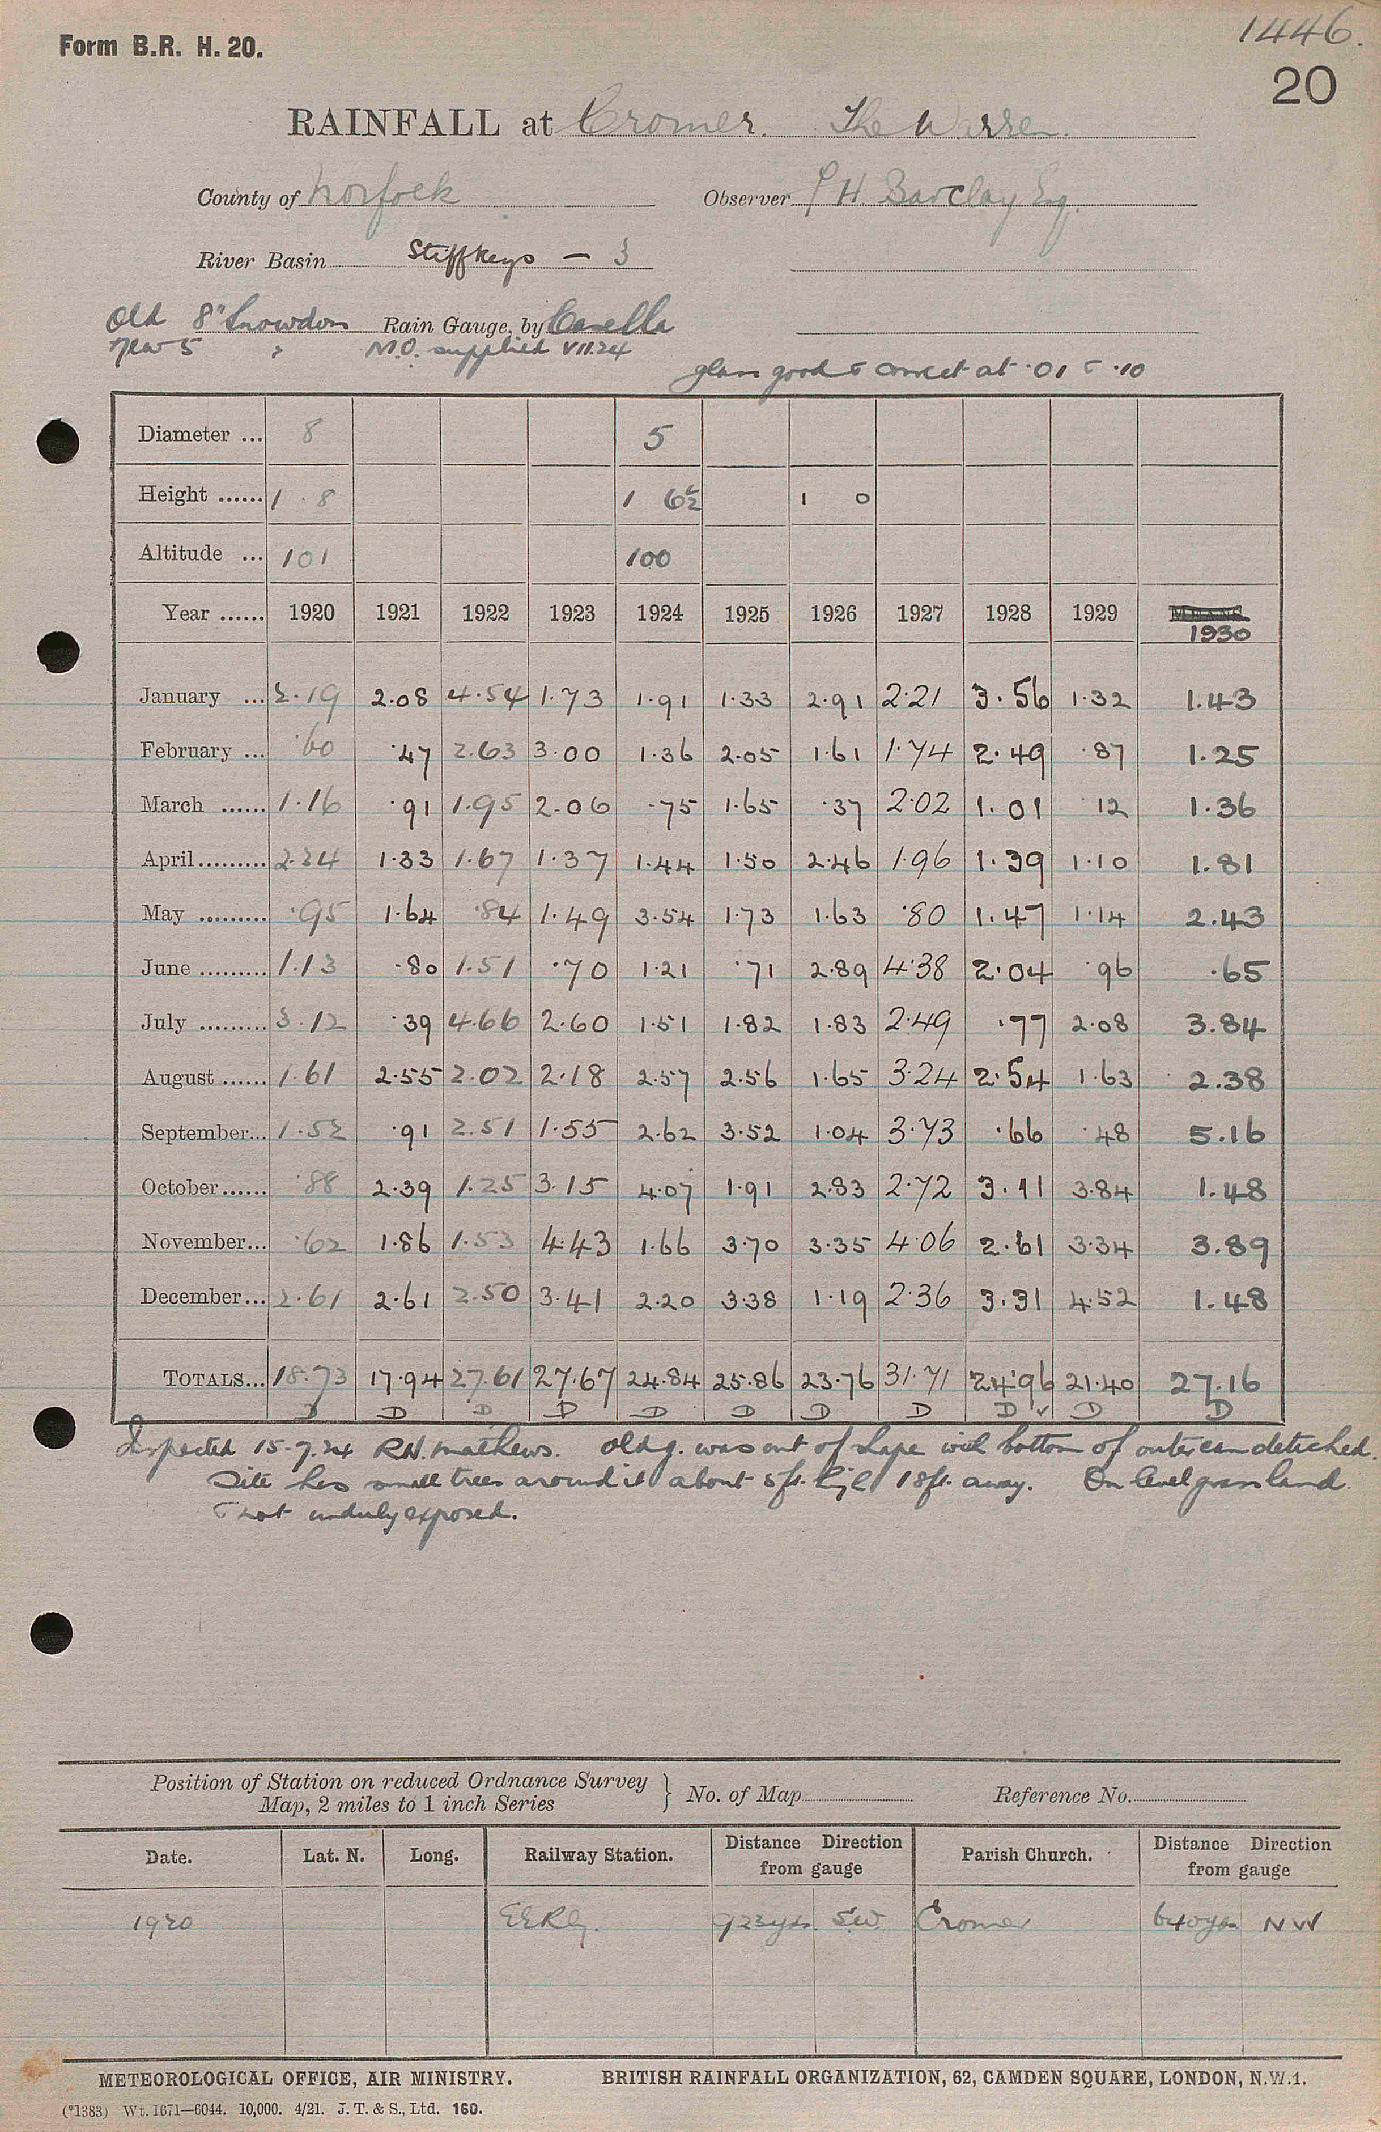 Form B.R. H. 20.
1446.
20
RAINFALL at Cromer. The Warren.
County of Norfolk Observer P H Barclay Esq.
River Basin Stiffkeys — 3
Old 8" Snowdon Rain Gauge, by Casella
New 5 " M.O. supplied VII.24
glass good & correct at .01 & .10
Diameter ... 8 5
Height ...... 1 . 8 1 6½ 1 0
Altitude ... 101 100
Year ...... 1920 1921 1922 1923 1924 1925 1926 1927 1928 1929 1930
January ... 2.19 2.08 4.54 1.73 1.91 1.33 2.91 2.21 3.56 1.32 1.43
February ... .60 .47 2.63 3.00 1.36 2.05 1.61 1.74 2.49 .87 1.25
March ...... 1.16 .91 1.95 2.06 .75 1.65 .37 2.02 1.01 12 1.36
April ......... 2.34 1.33 1.67 1.37 1.44 1.50 2.46 1.96 1.39 1.10 1.81
May ......... .95 1.64 .84 1.49 3.54 1.73 1.63 .80 1.47 1.14 2.43
June ......... 1.13 .80 1.51 .70 1.21 .71 2.89 4.38 2.04 .96 .65
July ......... 3.12 .39 4.66 2.60 1.51 1.82 1.83 2.49 .77 2.08 3.84
August ...... 1.61 2.55 2.02 2.18 2.57 2.56 1.65 3.24 2.54 1.63 2.38
September... 1.52 .91 2.51 1.55 2.62 3.52 1.04 3.73 .66 .48 5.16
October...... .88 2.39 1.25 3.15 4.07 1.91 2.83 2.72 3.11 3.84 1.48
November... .62 1.86 1.53 4.43 1.66 3.70 3.35 4.06 2.61 3.34 3.89
December... 2.61 2.61 2.50 3.41 2.20 3.38 1.19 2.36 3.31 4.52 1.48
TOTALS... 18.73 17.94 27.61 27.67 24.84 25.86 23.76 31.71 24.96 21.40 27.16
D D D D D D D D D v D D
Inspected 15-7.24 R.N. Mathews. Old g. was out of shape with bottom of outer can detached.
Site has small trees around it about 5ft. high 18ft. away. On level grassland
& not unduly exposed.
Position of Station on reduced Ordnance Survey Map, 2 miles to 1 inch Series } No. of Map Reference No.
Date. Lat. N. Long. Railway Station. Distance Direction from gauge Parish Church. Distance Direction from gauge
1920 G.E.Rly. 923yds SW Cromer 640yds NW
METEOROLOGICAL OFFICE, AIR MINISTRY. BRITISH RAINFALL ORGANIZATION, 62, CAMDEN SQUARE, LONDON, N.W.1.
(*1383) Wt. 1671—6044. 10,000. 4/21. J. T. & S., Ltd. 160.